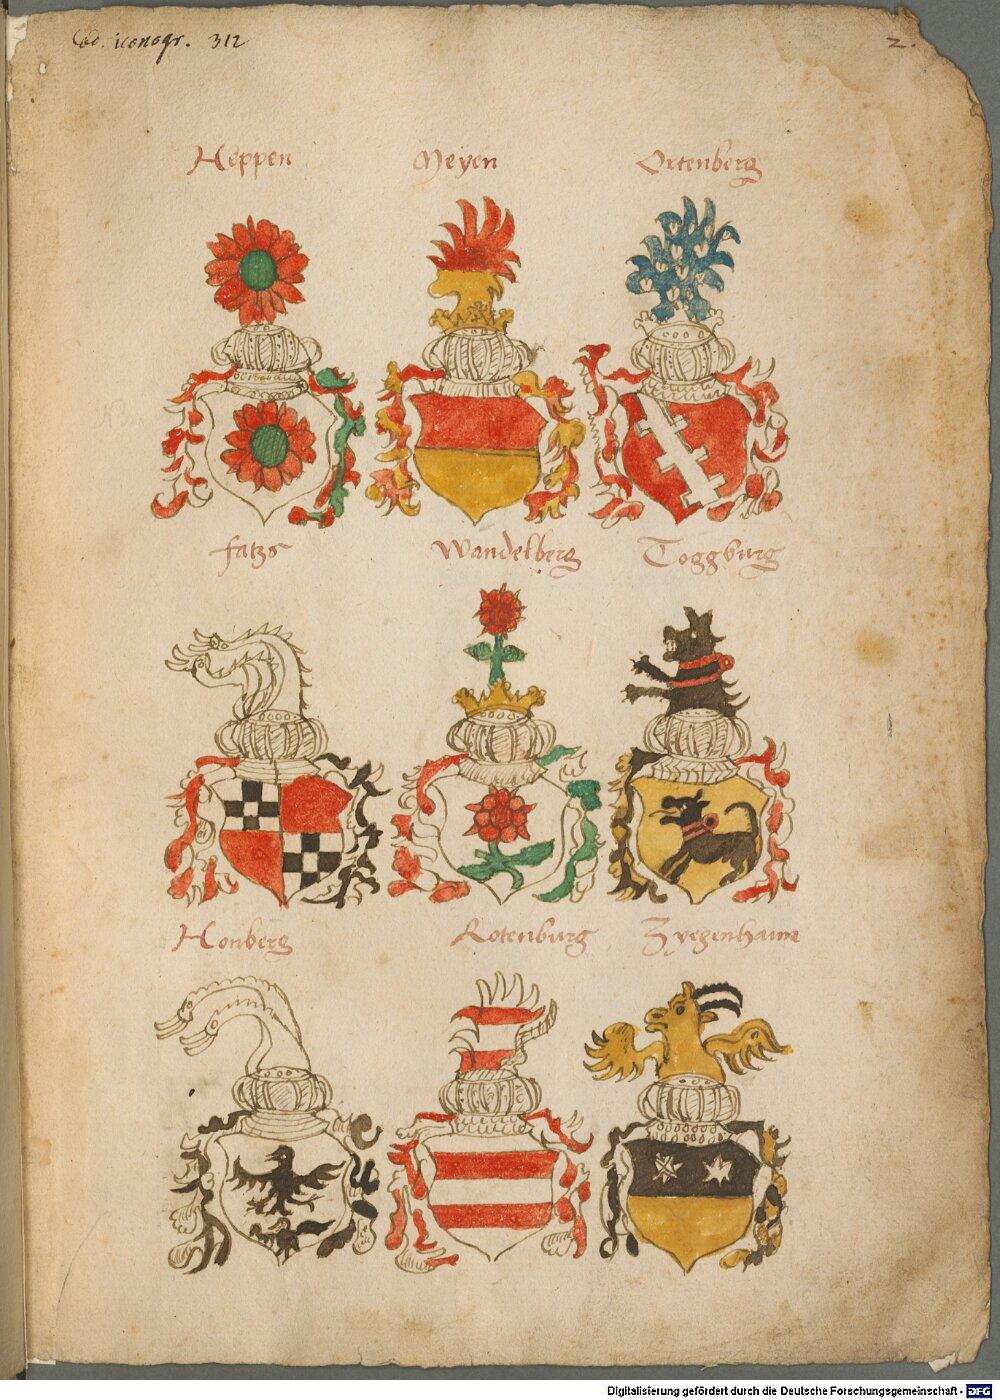 Cod. iconogr. 312
2.
Heppen Meyen Ortenberg
fatzs Wandelberg Toggburg
Honberg Rotenburg Zyegenhaim
Digitalisierung gefördert durch die Deutsche Forschungsgemeinschaft - DFG